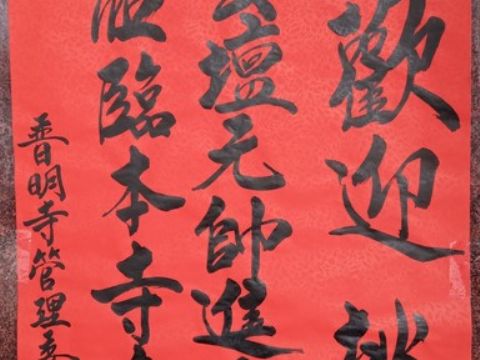 歡迎
壇元帥進
臨本寺
普明寺管理委